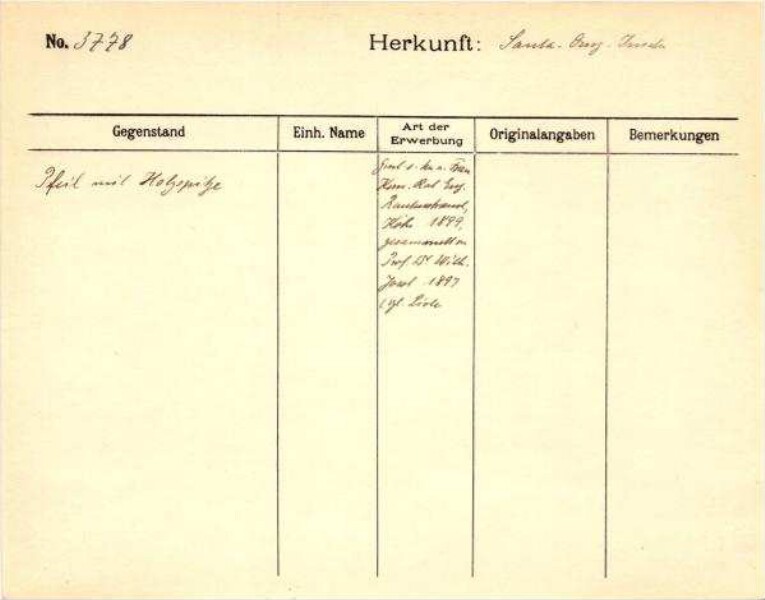 No. 3778 Herkunft: Santa-Cruz-Inseln
Gegenstand Einh. Name Art der Erwerbung Originalangaben Bemerkungen
Pfeil mit Holzspitze
Frau
Kom. Rat Eug.
Rautenstrauch,
Köln 1899,
gesammelt von
Prof. Dr. Wilh.
Joest 1897
vgl. Liste